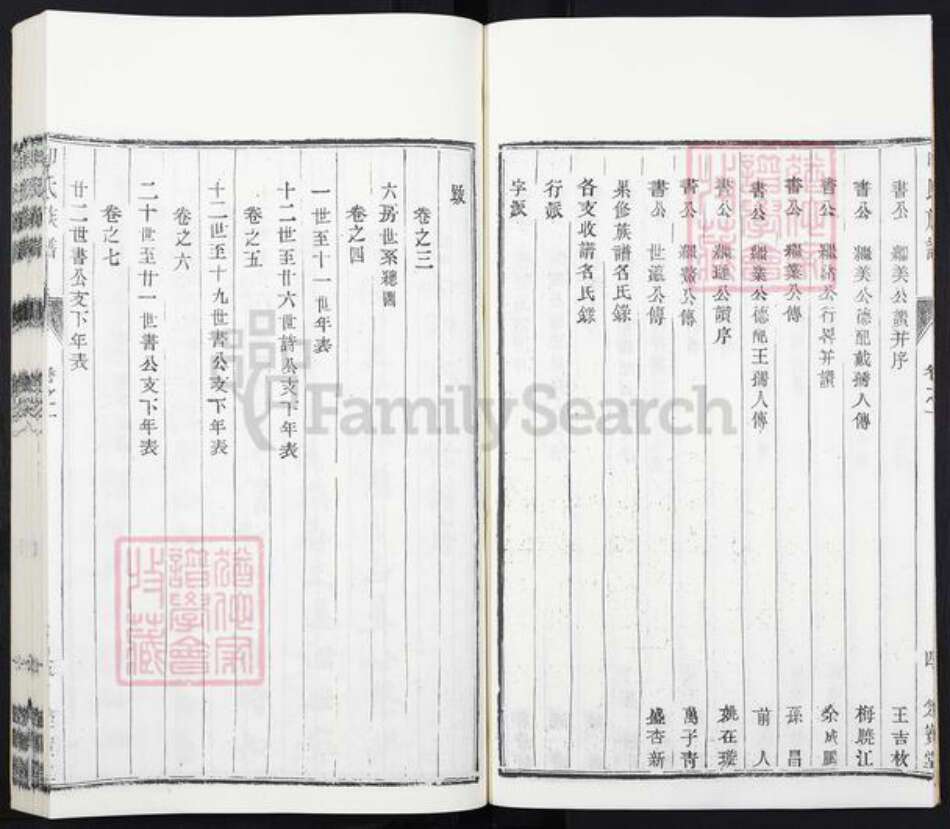 書公 繼美公讚并序 王吉枚
書公 繼美公德配戴孺人傳 梅曉江
書公 繼諸公行畧并讚 余成鵬
書公 繼業公傳 孫昌
書公 繼業公德配王孺人傳 前人
書公 繼述公讚序 姚在璇
書公 繼鰲公傳 萬子青
書公 世遠公傳 盛杏新
累修族譜名氏錄
各支收譜名氏錄
行派
字派
四
跋
卷之三
六房世系總圖
卷之四
一世至十一世年表
十二世至廿六世詩公支下年表
卷之五
十二世至十九世書公支下年表
卷之六
二十世至廿一世書公支下年表
卷之七
廿二世書公支下年表
氏族譜
卷之一
五
譜學會
FamilySearch